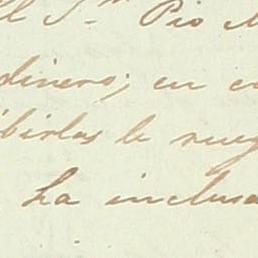 el S.ᵒʳ Pio
dinero; en
birlas le rueg
La inclusa